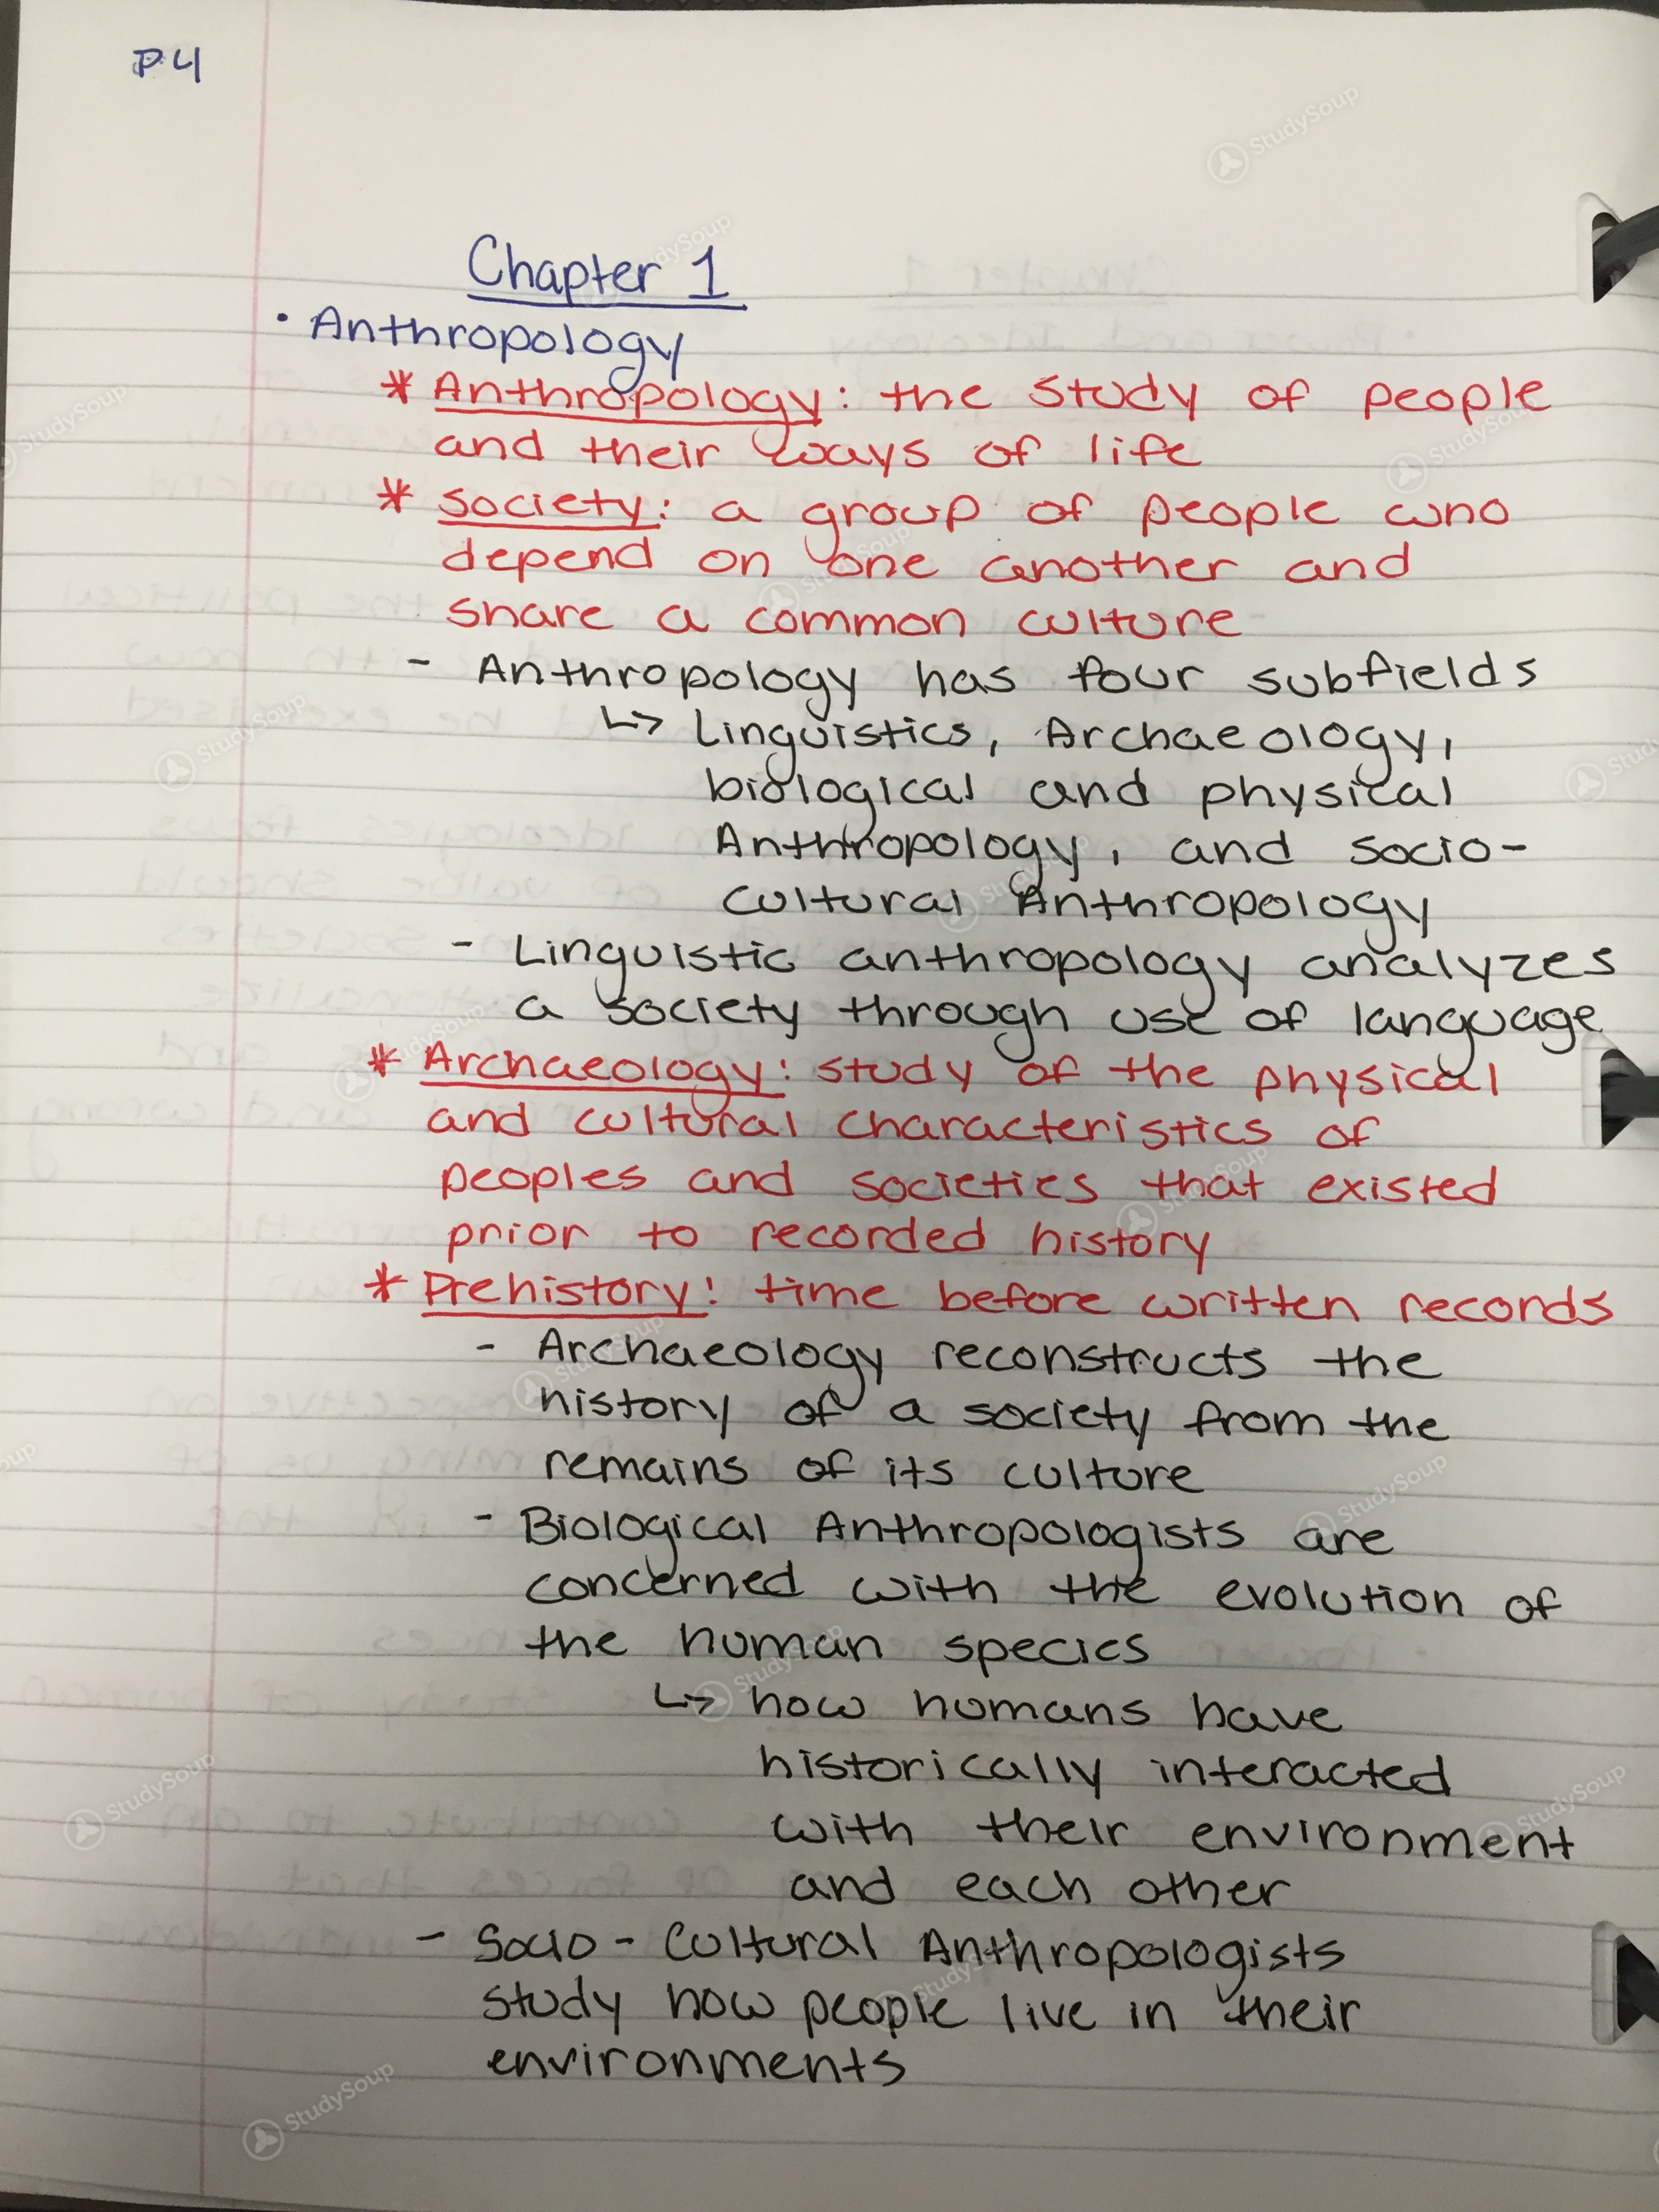 P4
Chapter 1
• Anthropology
* Anthropology: the study of people
and their ways of life
* Society: a group of people who
depend on one another and
share a common culture
- Anthropology has four subfields
↳ Linguistics, Archaeology,
biological and physical
Anthropology, and socio-
cultural Anthropology
- Linguistic anthropology analyzes
a society through use of language
* Archaeology: study of the physical
and cultural characteristics of
peoples and societies that existed
prior to recorded history
* Prehistory: time before written records
- Archaeology reconstructs the
history of a society from the
remains of its culture
- Biological Anthropologists are
concerned with the evolution of
the human species
↳ how humans have
historically interacted
with their environment
and each other
- Socio-Cultural Anthropologists
study how people live in their
environments
StudySoup